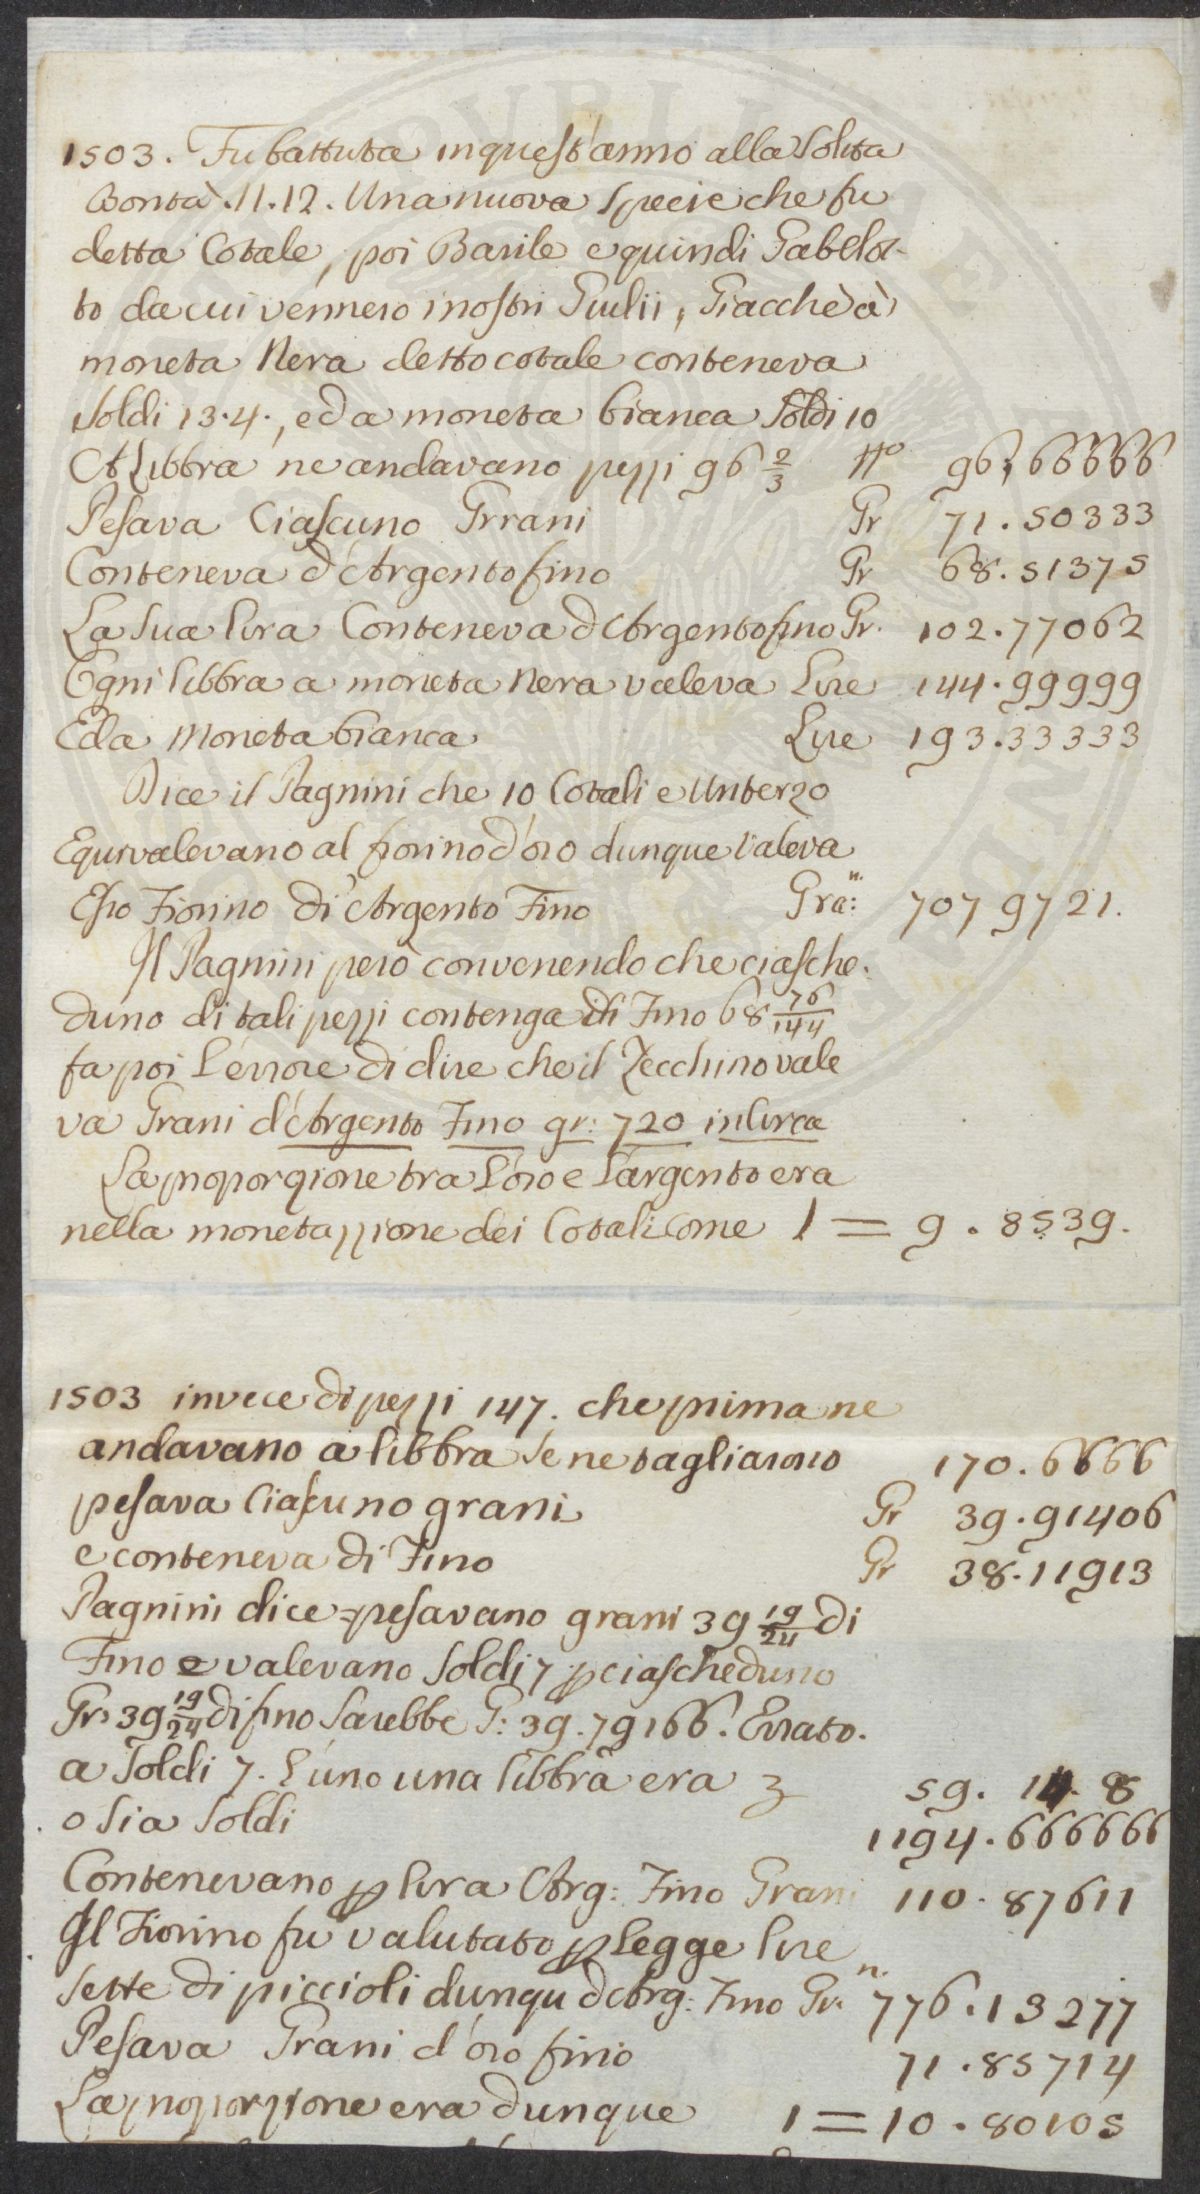 1503. Fu battuta in quest'anno alla Solita
Bontà. 11.12. Una nuova Specie che fu
detta Cotale, poi Barile e quindi Gabellot-
to da cui vennero i nostri Giulii, Giacchè à
moneta Nera detto cotale conteneva
Soldi 13.4., ed a moneta bianca Soldi 10
A Libbra ne andavano pezzi 96 2/3 No 96,66666
Pesava Ciascuno Grrani Gr 71.50333
Conteneva d'Argento fino Gr 68.51375
La Sua lira Conteneva d'Argento fino Gr. 102.77062
Ogni libbra a moneta Nera valeva Lire 144.99999
Ed a Moneta bianca Lire 193.33333
Dice il Pagnini che 10 Cotali e Un terzo
Equivalevano al fiorino d'oro dunque valeva
Esso Fiorino di Argento Fino Gra:n. 707 9721.
Il Pagnini però convenendo che ciasche.
duno di tali pezzi contenga di Fino 68 76/144
fa poi l'errore di dire che il Zecchino vale
va Grani d'Argento Fino gr: 720 in circa
La proporzione tra l'oro e l'argento era
nella monetazzione dei Cotali Come 1 = 9.8539.
1503 invece di pezzi 147. che prima ne
andavano a libbra se ne tagliarono 170.6666
pesava Ciascuno grani Gr 39.91406
e conteneva di Fino Gr 38.11913
Pagnini dice pesavano grani 39 19/24 di
Fino e valevano Soldi 7 p ciascheduno
Gr. 39 19/24 di fino Sarebbe G: 39.79166. Errato.
a Soldi 7. l'uno una libbra era 59. 14. 8
o Sia Soldi 1194.666666
Contenevano p lira Arg: Fino Grani 110.87611
Il Fiorino fu valutato p Legge lire
Sette di piccioli dunqu d'Arg: Fino Gr.n. 776.13277
Pesava Grani d'oro fino 71.85714
La proporzione era dunque 1 = 10.80105